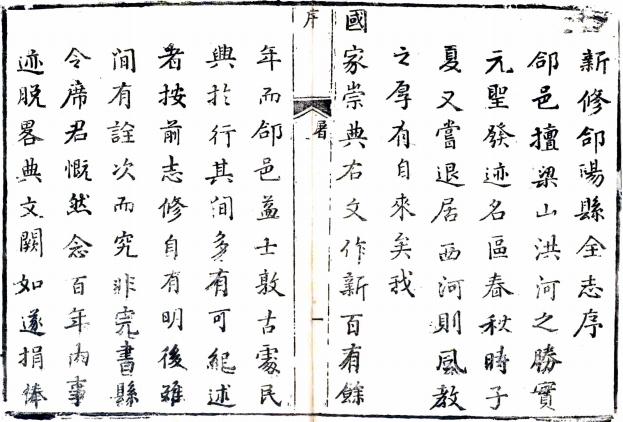 新修郃陽縣全志序
郃邑擅梁山洪河之勝實
元聖發迹名區春秋時子
夏又嘗退居西河則風教
之厚有自來矣我
國家崇典右文作新百有餘
序
一
年而郃邑益士敦古處民
興於行其间多有可紀述
者按前志修自有明後雖
间有詮次而究非完書縣
令席君慨然念百年内事
迹脱畧典文闕如遂捐俸